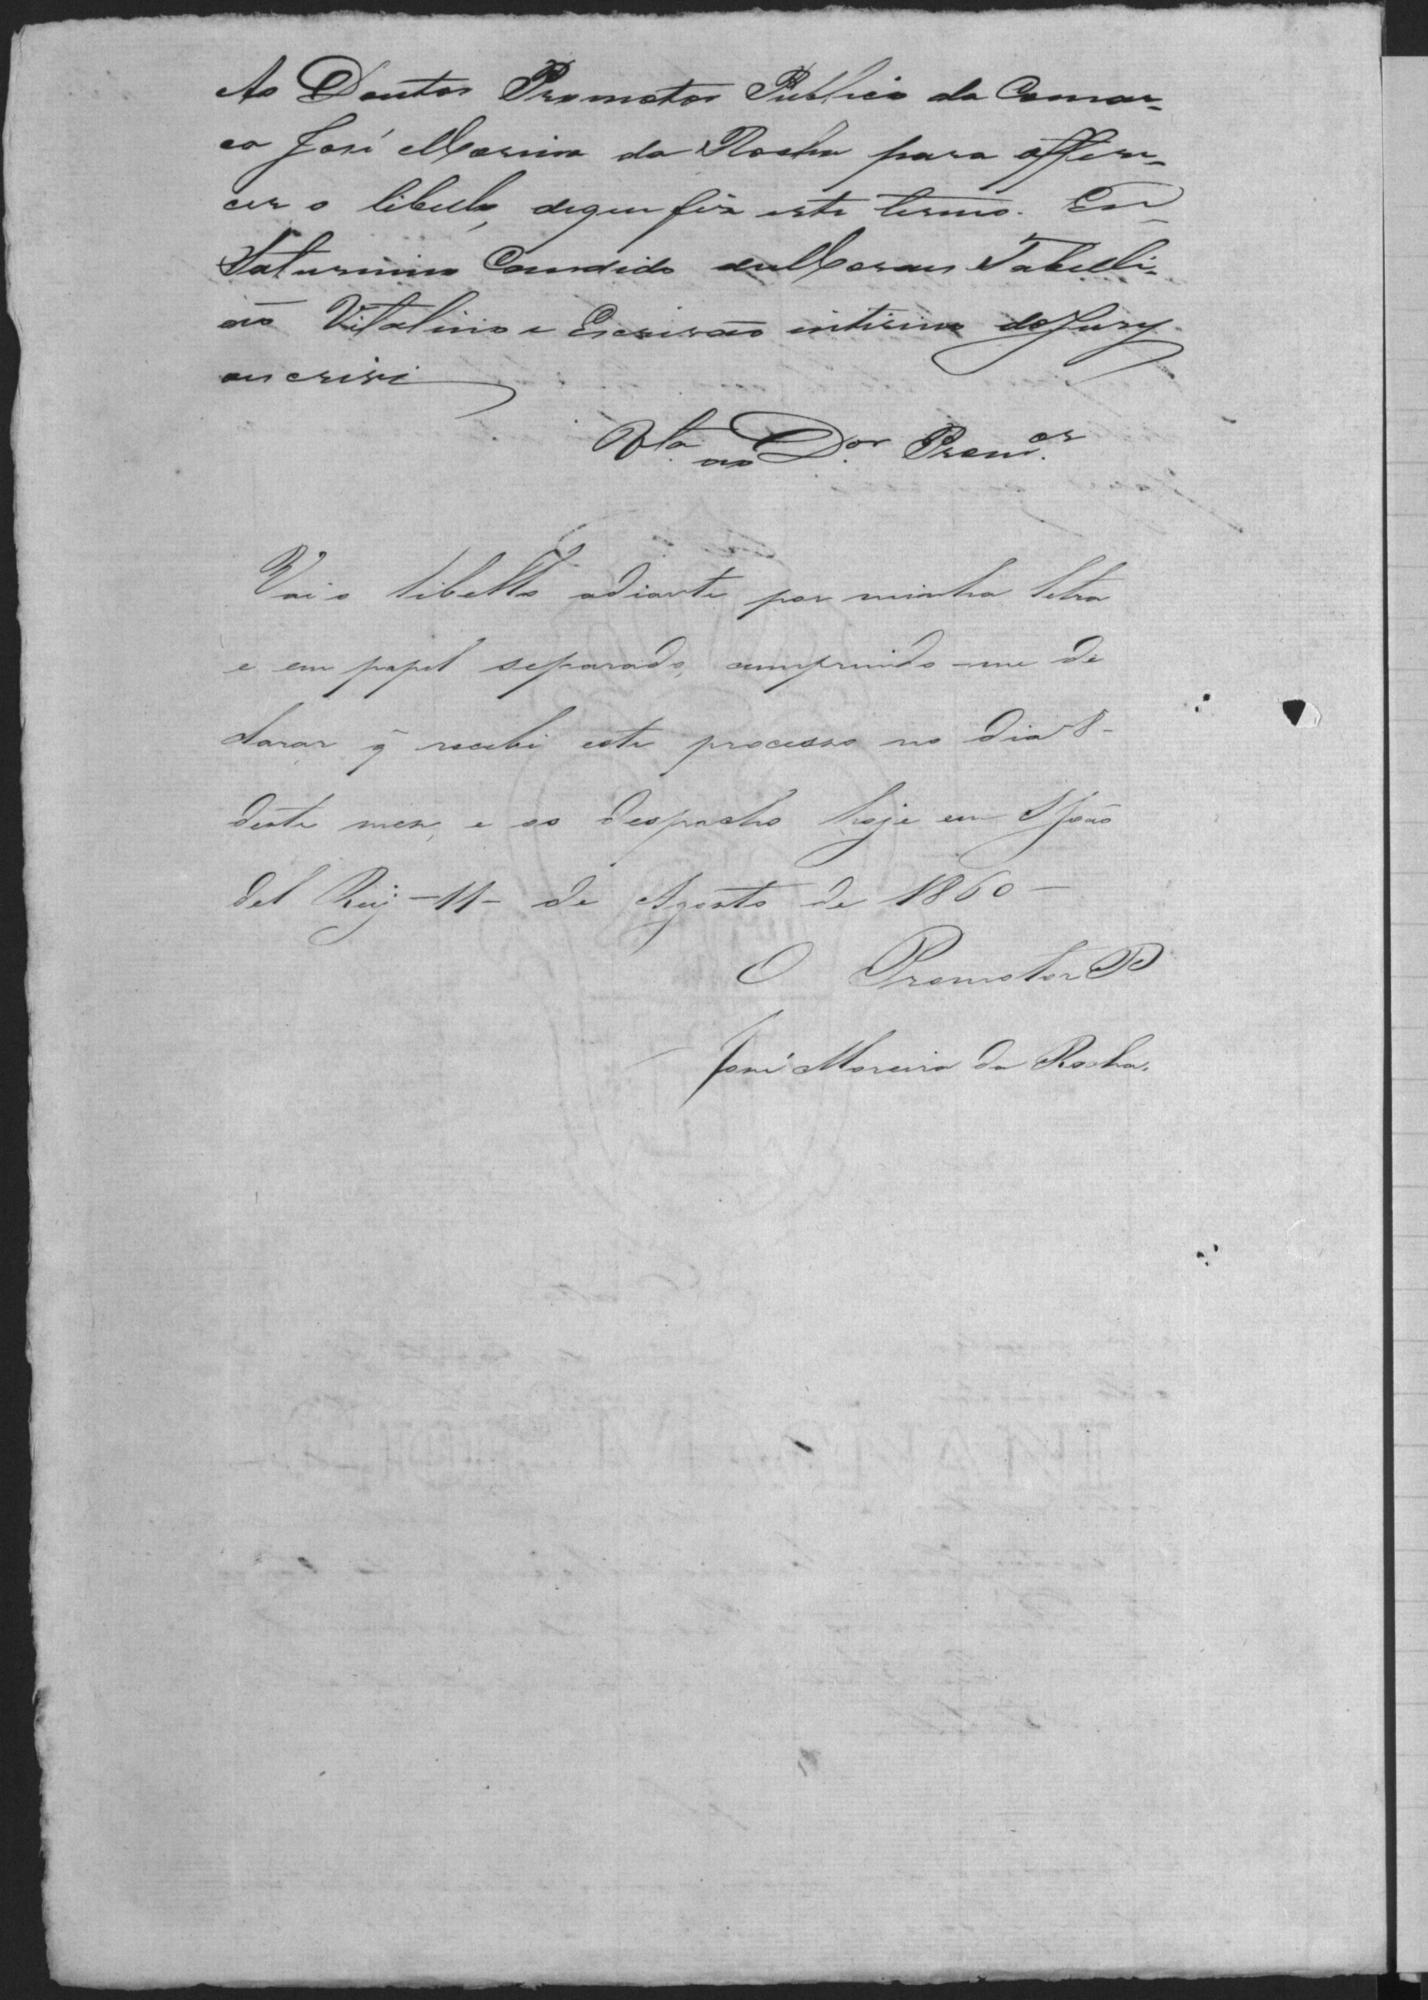 Ao Doutor Promotor Publico da Comar-
ca José Moreira da Rocha para offere-
cer o libello, de que fiz este termo. Eu
Saturnino Candido de Moraes Tabelli-
ão Vitalino e Escrivão interino do Jury
o escrivi
Vta ao Dor Promor
Vai o libello adiante por minha letra
e em papel separado, cumprindo-me de
clarar q̃ recebi este processo no dia 8-
deste mez, e so despacho hoje em S João
del Rey -11- de Agosto de 1860-
O Promotor P
José Moreira da Rocha.